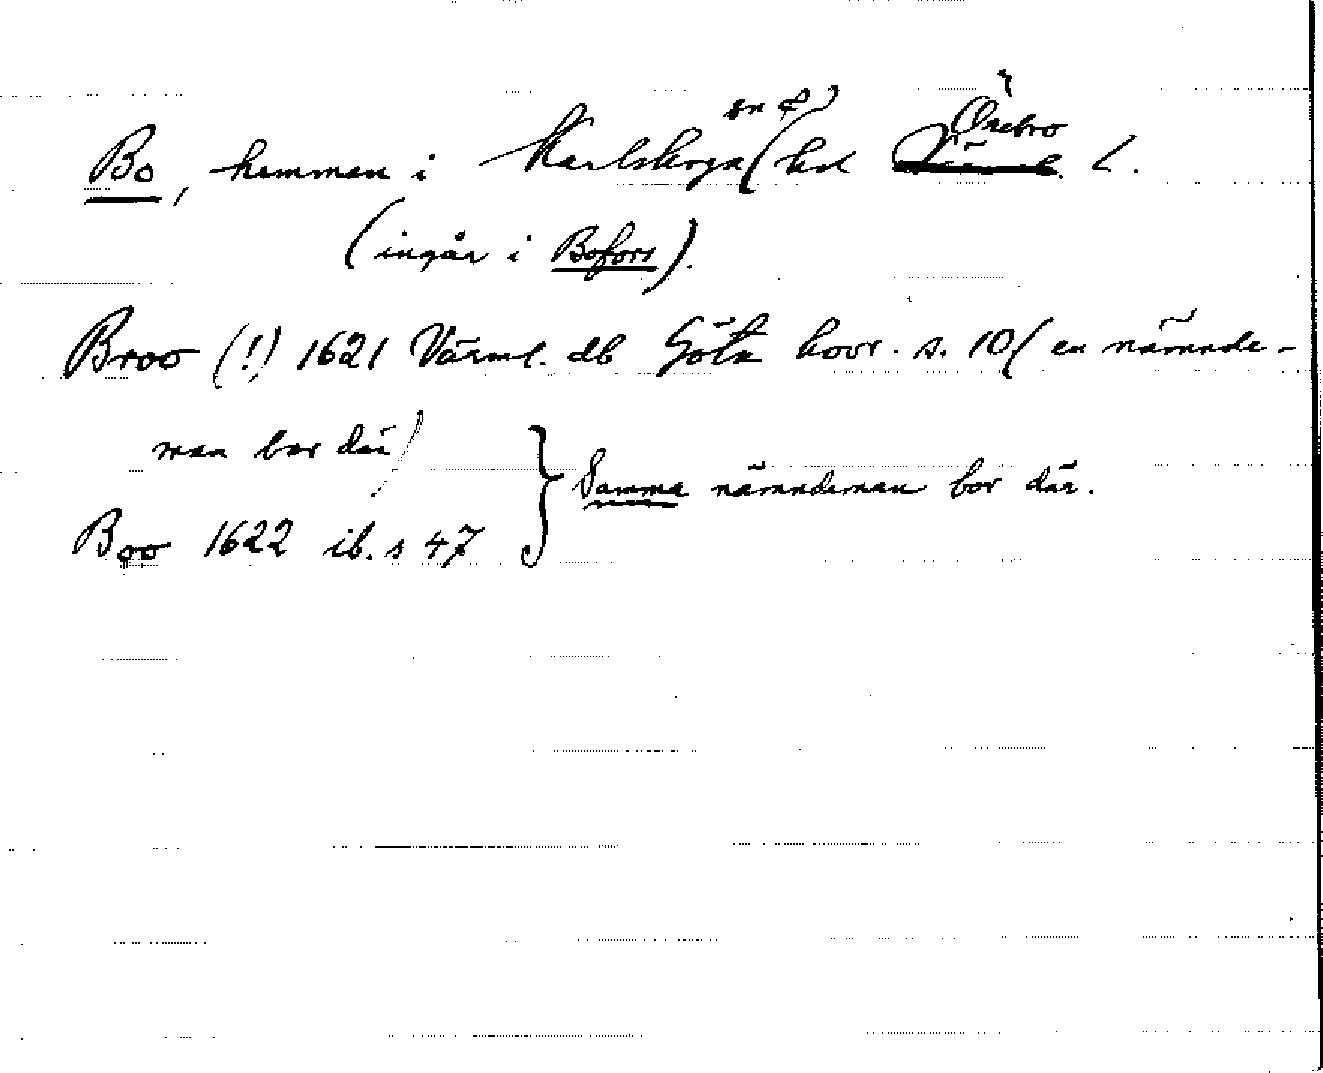 Bo, hemman i Karlskoga sn & hd Örebro l.
(ingår i Bofors).
Broo (!) 1621 Värml. db Göta hovr. s. 10 (en nämnde-
man bor där)
Samma nämndeman bor där.
Boo 1622 ib. s 47